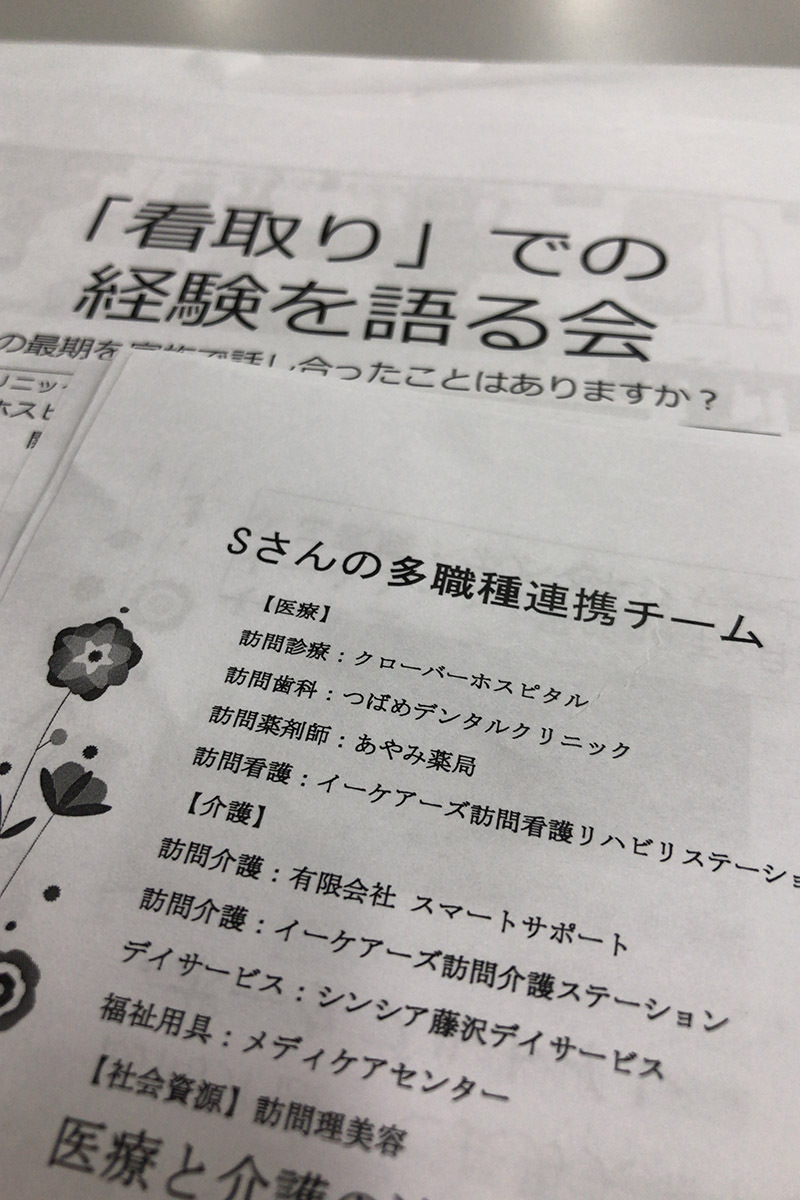 「看取り」での
経験を語る会
の最期を家族で話し合ったことはありますか?
リニッ
ホスピ
Sさんの多職種連携チーム
【医療】
訪問診療：クローバーホスピタル
訪問歯科：つばめデンタルクリニック
訪問薬剤師：あやみ薬局
訪問看護：イーケアーズ訪問看護リハビリステーショ
【介護】
訪問介護：有限会社 スマートサポート
訪問介護：イーケアーズ訪問介護ステーション
デイサービス：シンシア藤沢デイサービス
福祉用具：メディケアセンター
【社会資源】訪問理美容
医療と介護の